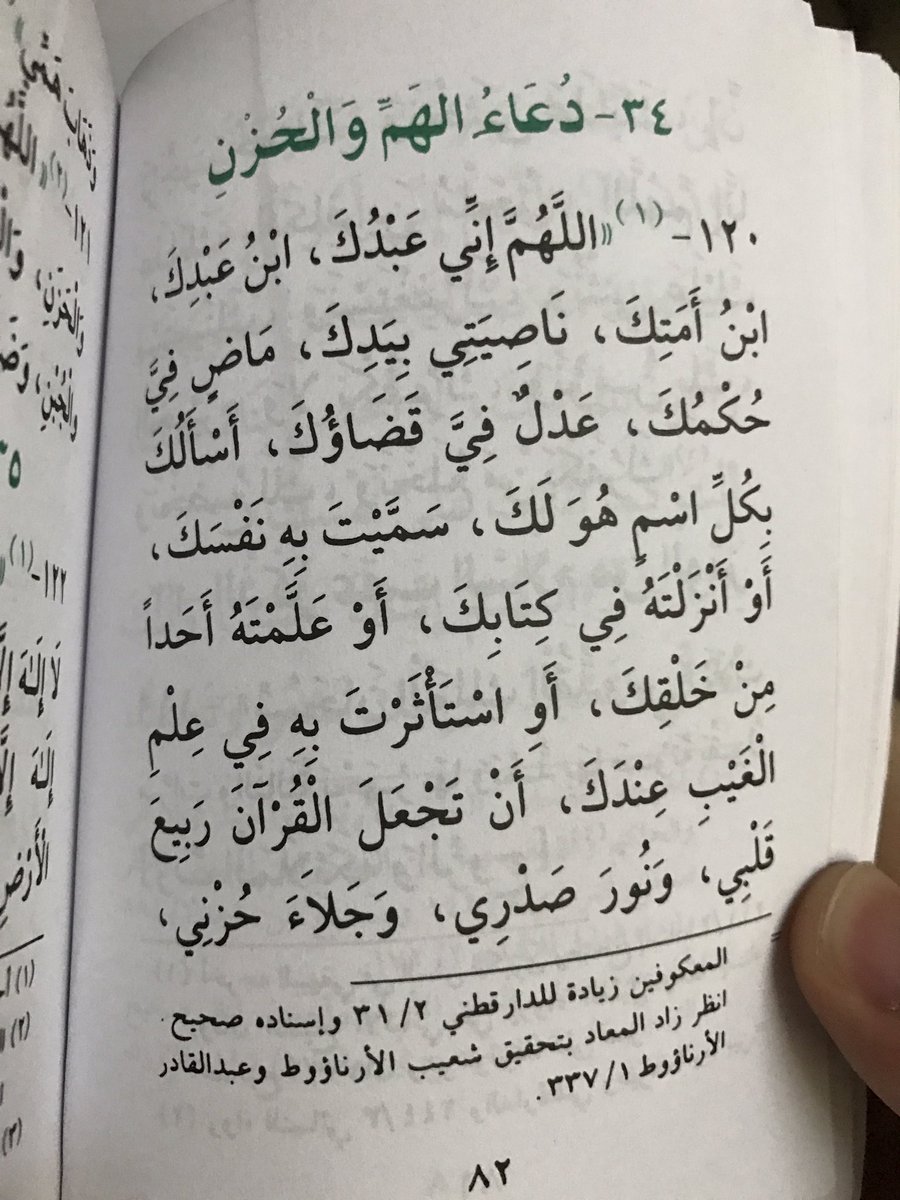 ٣٤- دُعَاءُ الهَمِّ وَالْحُزْنِ
١٢٠-(١) «اللَّهُمَّ إِنِّي عَبْدُكَ، ابْنُ عَبْدِكَ،
ابْنُ أَمَتِكَ، نَاصِيَتِي بِيَدِكَ، مَاضٍ فِيَّ
حُكْمُكَ، عَدْلٌ فِيَّ قَضَاؤُكَ، أَسْأَلُكَ
بِكُلِّ اسْمٍ هُوَ لَكَ، سَمَّيْتَ بِهِ نَفْسَكَ،
أَوْ أَنْزَلْتَهُ فِي كِتَابِكَ، أَوْ عَلَّمْتَهُ أَحَداً
مِنْ خَلْقِكَ، أَوِ اسْتَأْثَرْتَ بِهِ فِي عِلْمِ
الْغَيْبِ عِنْدَكَ، أَنْ تَجْعَلَ الْقُرْآنَ رَبِيعَ
قَلْبِي، وَنُورَ صَدْرِي، وَجَلاَءَ حُزْنِي،
المعكوفين زيادة للدارقطني ٣١/٢ وإسناده صحيح.
انظر زاد المعاد بتحقيق شعيب الأرناؤوط وعبدالقادر
الأرناؤوط ٣٣٧/١.
٨٢
(٢) «
١٢١-
وَالْحَزَنِ،
١٢٢-(١)
لَا إِلَهَ
إِلَهَ
الْأَرْضِ
(١)
(٢)
(٣)